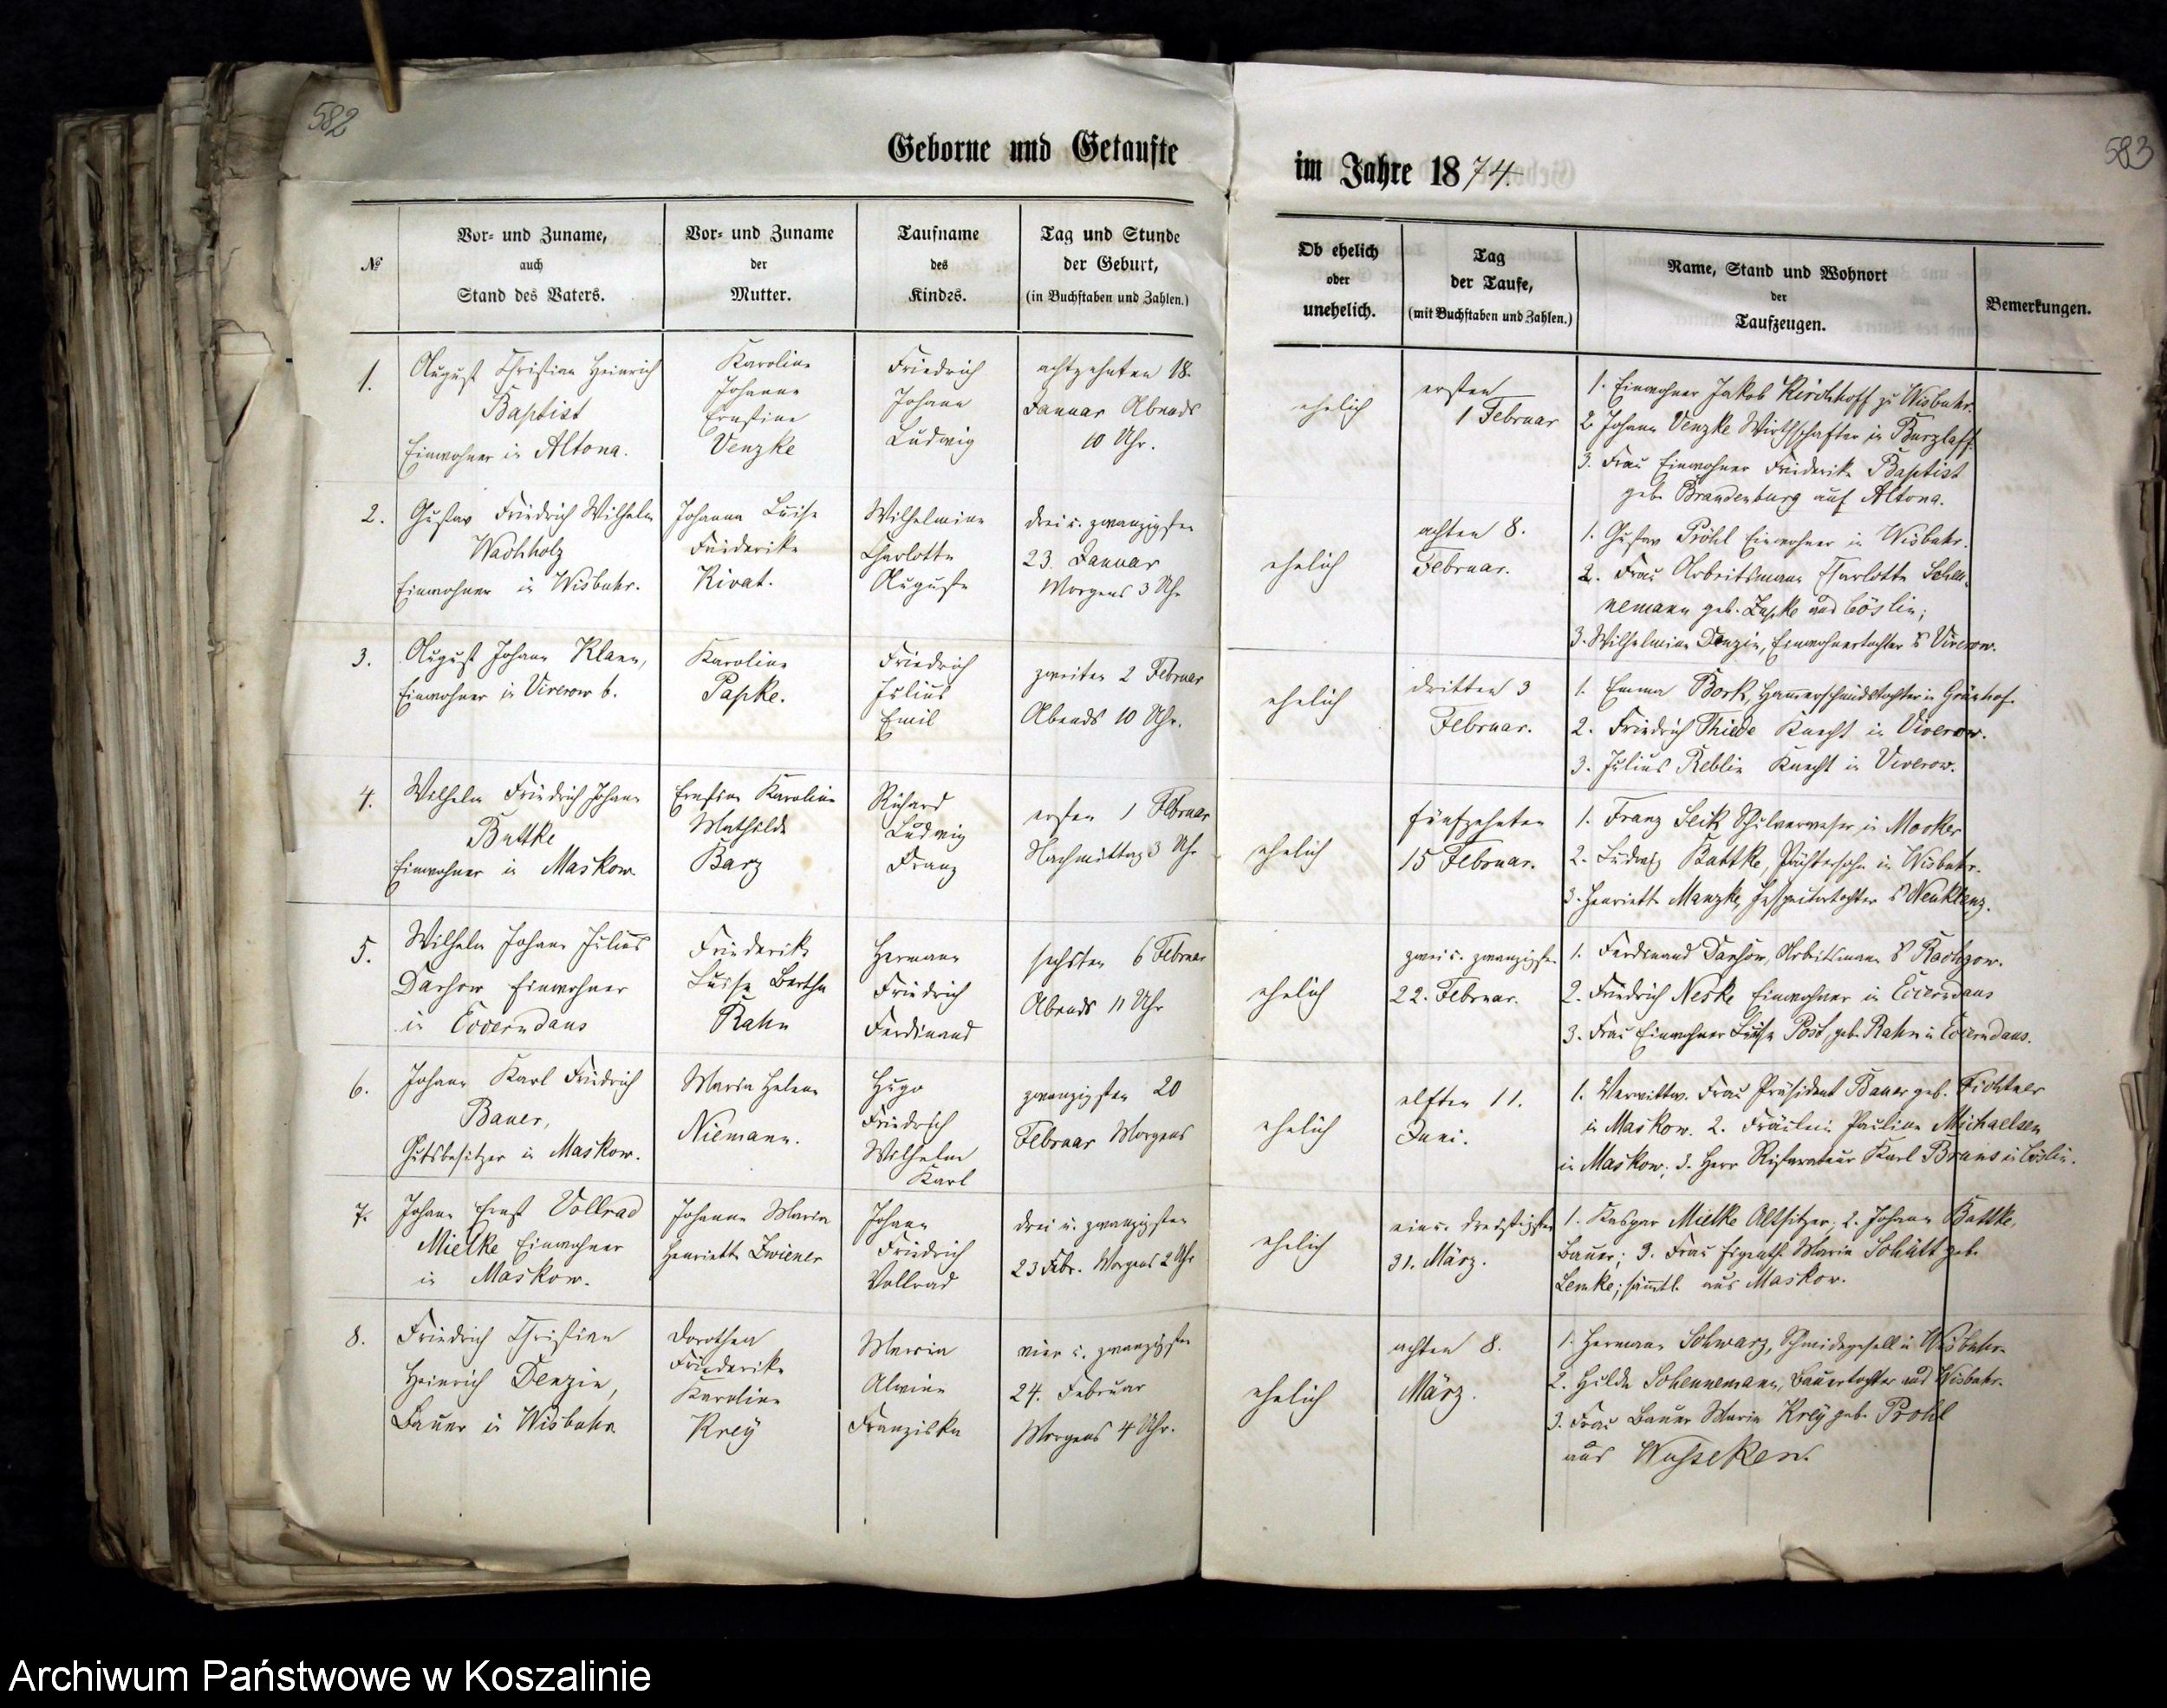 582
Geborne und Getaufte
№
Vor- und Zuname,
auch
Stand des Vaters.
Vor- und Zuname
der
Mutter.
Taufname
des
Kindes.
Tag und Stunde
der Geburt,
(in Buchstaben und Zahlen.)
1.
August Christian Heinrich
Baptist
Einwohner in Altona.
Karoline
Johanne
Ernstine
Venzke
Friedrich
Johann
Ludwig
achtzehnten 18.
Januar Abends
10 Uhr.
2.
Gustav Friedrich Wilhelm
Wachholz
Einwohner in Wisbuhr.
Johanna Luise
Friederike
Rivat.
Wilhelmine
Charlotte
Auguste
drei u. zwanzigsten
23. Januar
Morgens 3 Uhr
3.
August Johann Klann,
Einwohner in Viverow b.
Karoline
Papke.
Friedrich
Julius
Emil
zweiten 2 Februar
Abends 10 Uhr.
4.
Wilhelm Friedrich Johann
Buttke
Einwohner in Maskow.
Ernstine Karoline
Mathilde
Barz
Richard
Ludwig
Franz
ersten 1 Februar
Nachmittag 3 Uhr
5.
Wilhelm Johann Julius
Darsow Einwohner
in
Friederike
Luise Bertha
Rahn
Hermann
Friedrich
Ferdinand
sechsten 6 Februar
Abends 11 Uhr
6.
Johann Karl Friedrich
Bauer,
Gutsbesitzer in Maskow.
Maria Helene
Niemann.
Hugo
Friedrich
Wilhelm
Karl
zwanzigsten 20
Februar Morgens
7.
Johann Ernst Vollrad
Mielke Einwohner
in Maskow.
Johanne Maria
Henriette Zwiener
Johann
Friedrich
Vollrad
drei u. zwanzigsten
23 Febr. Morgens 2 Uhr
8.
Friedrich Christian
Heinrich Denzin,
Bauer in Wisbuhr
Dorothea
Friederike
Karoline
Krey
Maria
Alwine
Franziska
vier u. zwanzigsten
24. Februar
Morgens 4 Uhr.
583
im Jahre 1874.
Ob ehelich
oder
unehelich.
Tag
der Taufe,
(mit Buchstaben und Zahlen.)
Name, Stand und Wohnort
der
Taufzeugen.
Bemerkungen.
ehelich
ersten
1 Februar
1. Einwohner Jakob Kirchhoff zu Wisbuhr.
2. Johann Venzke Wirthschafter in Burzlaff.
3. Frau Einwohner Friederike Baptist
geb. Brandenburg auf Altona.
ehelich
achten 8.
Februar.
1. Gustav Pröhl Einwohner in Wisbuhr.
2. Frau Arbeitsmann Charlotte Schen-
nemann geb. Papke aus Cöslin;
3. Wilhelmine Denzin, Einwohnertochter Viverow.
ehelich
dritten 3
Februar.
1. Emma Bork, Hammerschmidstochter in Grünhof.
2. Friedrich Thiede Knecht in Viverow.
3. Julius Reblin Knecht in Viverow.
ehelich
fünfzehnten
15 Februar.
1. Franz Seik Schulverweser in Mocker
2. Ludwig Battke, Pächtersohn in Wisbuhr.
3. Henriette Manzke, Inspectortochter Neuklenz.
ehelich
zwei u. zwanzigsten
22. Februar.
1. Ferdinand Darsow, Arbeitsmann
2. Friedrich Neske Einwohner in
3. Frau Einwohner Luise Post geb. Rahn in
ehelich
elften 11.
Juni.
1. Verwittw. Frau Präsident Bauer geb. Fichtner
in Maskow. 2. Fräulein Pauline Michaelsen
in Maskow; 3. Herr Restaurateur Karl Brans in Cöslin.
ehelich
ein u. dreißigsten
31. März.
1. Kaspar Mielke Altsitzer; 2. Johann Battke,
Bauer; 3. Frau Eigenth. Maria Schütt geb.
Lemke; sämtl. aus Maskow.
ehelich
achten 8.
März.
1. Hermann Schwarz, Schmidegesell in Wisbuhr.
2. Hulda Schennemann, Bauertochter aus Wisbuhr.
3. Frau Bauer Maria Krey geb. Prohl
aus Wusseken.
Archiwum Państwowe w Koszalinie